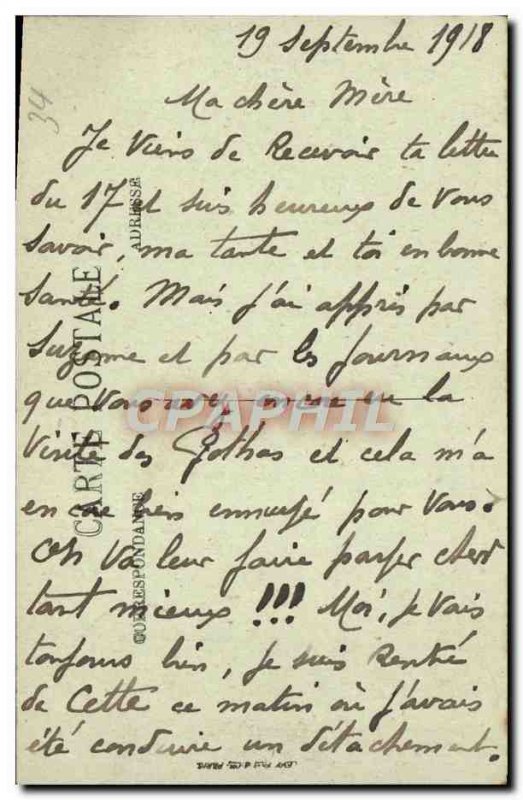 19 septembre 1918
34
Ma chère Mère
Je viens de recevoir ta lettre
du 17 et suis heureux de vous
savoir, ma tante et toi en bonne
santé. Mais j'ai appris par
Suzanne et par les journaux
que vous avez encore eu la
visite des Gothas et cela m'a
encore bien ennuyé pour vous.
On va leur faire payer cher
tant mieux !!! Moi, je vais
toujours bien, je suis rentré
de Cette ce matin où j'avais
été conduire un détachement.
CARTE POSTALE
CORRESPONDANCE
ADRESSE
CPAPHIL
LEVY FILS & Cie, PARIS